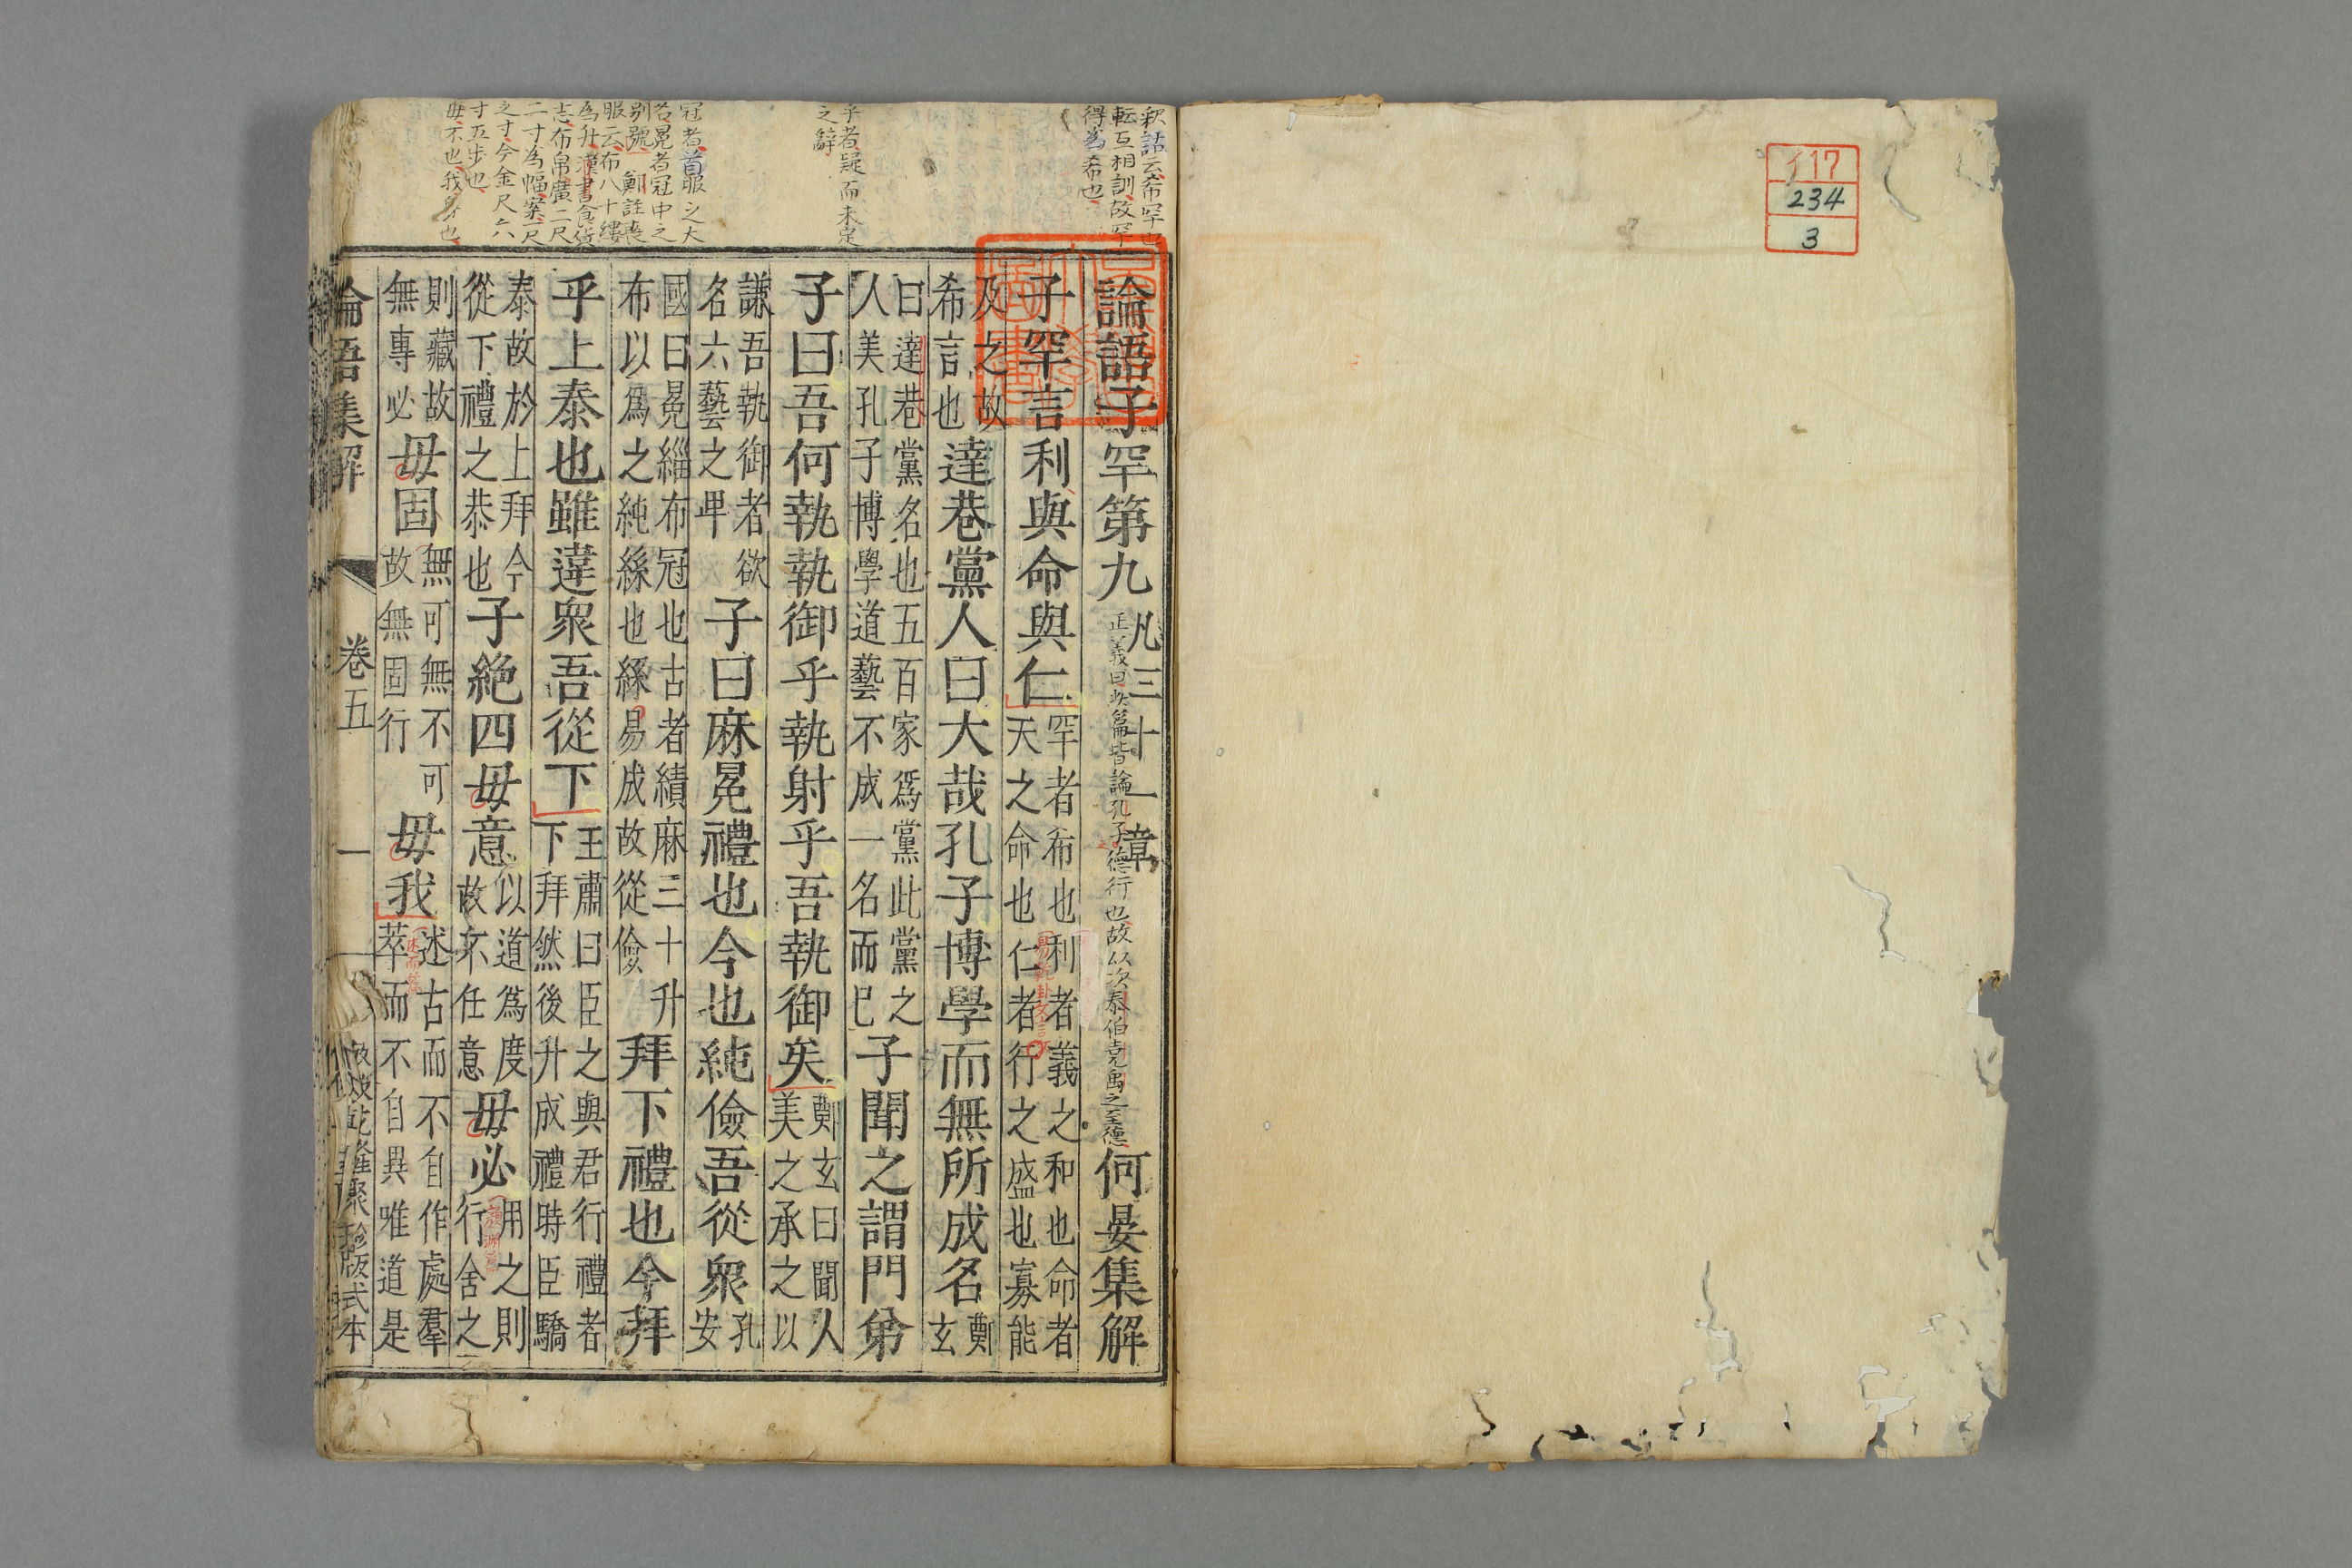 イ17
234
3
釈詁云希罕也
転互相訓故罕
得為希也
乎者疑而未定
之辭
冠者首服之大
名冕者冠中之
別號 鄭註喪
服云布八十縷
為升漢書食貨
志布帛廣二尺
二寸為幅案一尺
之寸今金尺六
寸五步也
毋不也我身也
論語子罕第九 凡三十一章 何晏集解
正義曰此篇皆論孔子德行也故以次泰伯堯禹之至德
子罕言利與命與仁 罕者希也利者義之和也命者
天之命也仁者行之盛也寡能
及之故
希言也 達巷黨人曰大哉孔子博學而無所成名 鄭
玄
曰達巷黨名也五百家爲黨此黨之
人美孔子博學道藝不成一名而已 子聞之謂門弟
子曰吾何執執御乎執射乎吾執御矣 鄭玄曰聞人
美之承之以
謙吾執御者欲
名六藝之卑 子曰麻冕禮也今也純儉吾從衆 孔
安
國曰冕緇布冠也古者績麻三十升
布以爲之純絲也絲易成故從儉 拜下禮也今拜
乎上泰也雖違衆吾從下 王肅曰臣之與君行禮者
下拜然後升成禮時臣驕
泰故於上拜今
從下禮之恭也 子絶四毋意 以道爲度
故不任意 毋必 用之則
行舍之
則藏故
無專必 毋固 無可無不可
故無固行 毋我 述古而不自作處羣
萃而不自異唯道是
論語集解 卷五 一 乾隆聚珍版式本